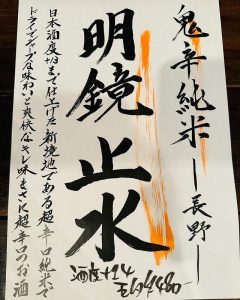 鬼辛純米ー長野ー
明鏡止水
日本酒度+13まで仕上げた新境地である超辛口純米で
ドライでシャープな味わいと爽快なキレ味まさに超辛口のお酒